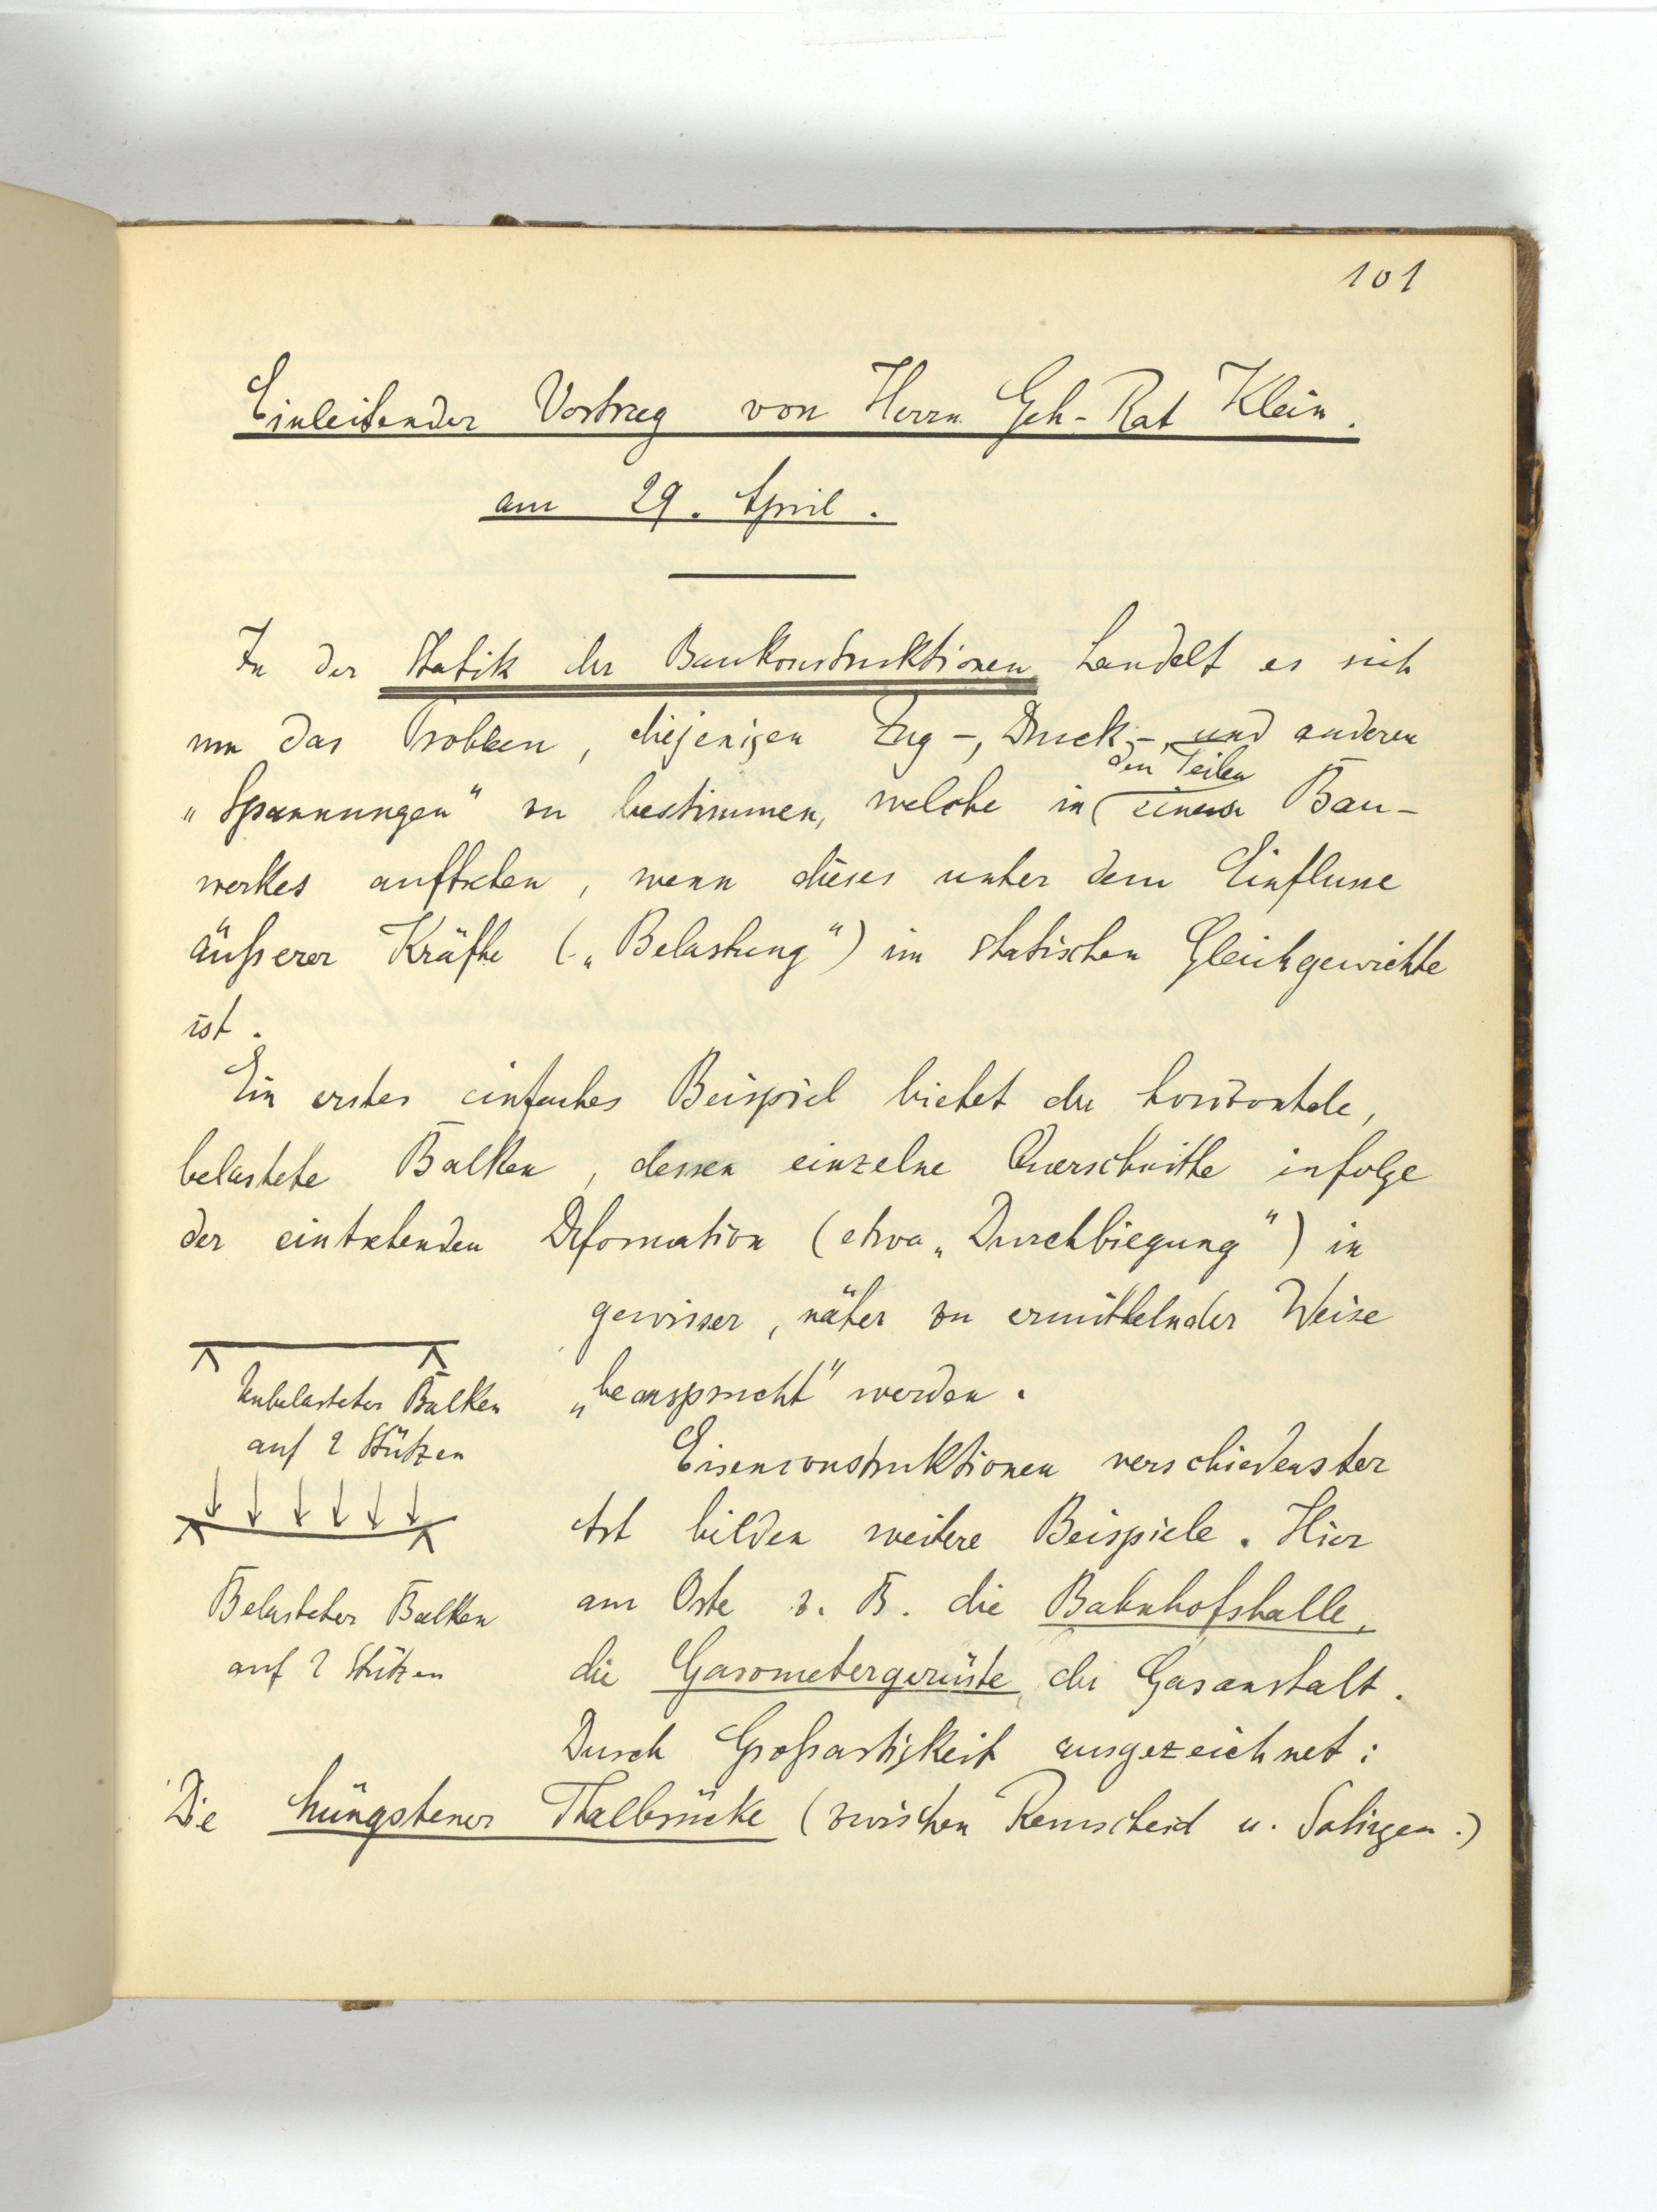 101
Einleitender Vortrag von Herrn Geh-Rat Klein.
am 29. April.
In der Statik der Baukonstruktionen handelt es sich
um das Problem, diejenigen Zug-, Druck-, und anderen
„Spannungen" zu bestimmen, welche in den Teilen eines Bau-
werkes auftreten, wenn dieses unter dem Einflusse
äußerer Kräfte („Belastung") im statischen Gleichgewichte
ist.
Ein erstes einfaches Beispiel bietet der horizontale,
belastete Balken, dessen einzelne Querschnitte infolge
der eintretenden Deformation (etwa „Durchbiegung") in
gewisser, näher zu ermittelnder Weise
„beansprucht" werden.
Unbelasteter Balken
auf 2 Stützen
Eisenconstruktionen verschiedenster
Art bilden weitere Beispiele. Hier
am Orte z. B. die Bahnhofshalle,
Belasteter Balken
auf 2 Stützen
die Gasometergerüste der Gasanstalt.
Durch Großartigkeit ausgezeichnet:
Die Müngstener Thalbrücke (zwischen Remscheid u. Solingen.)